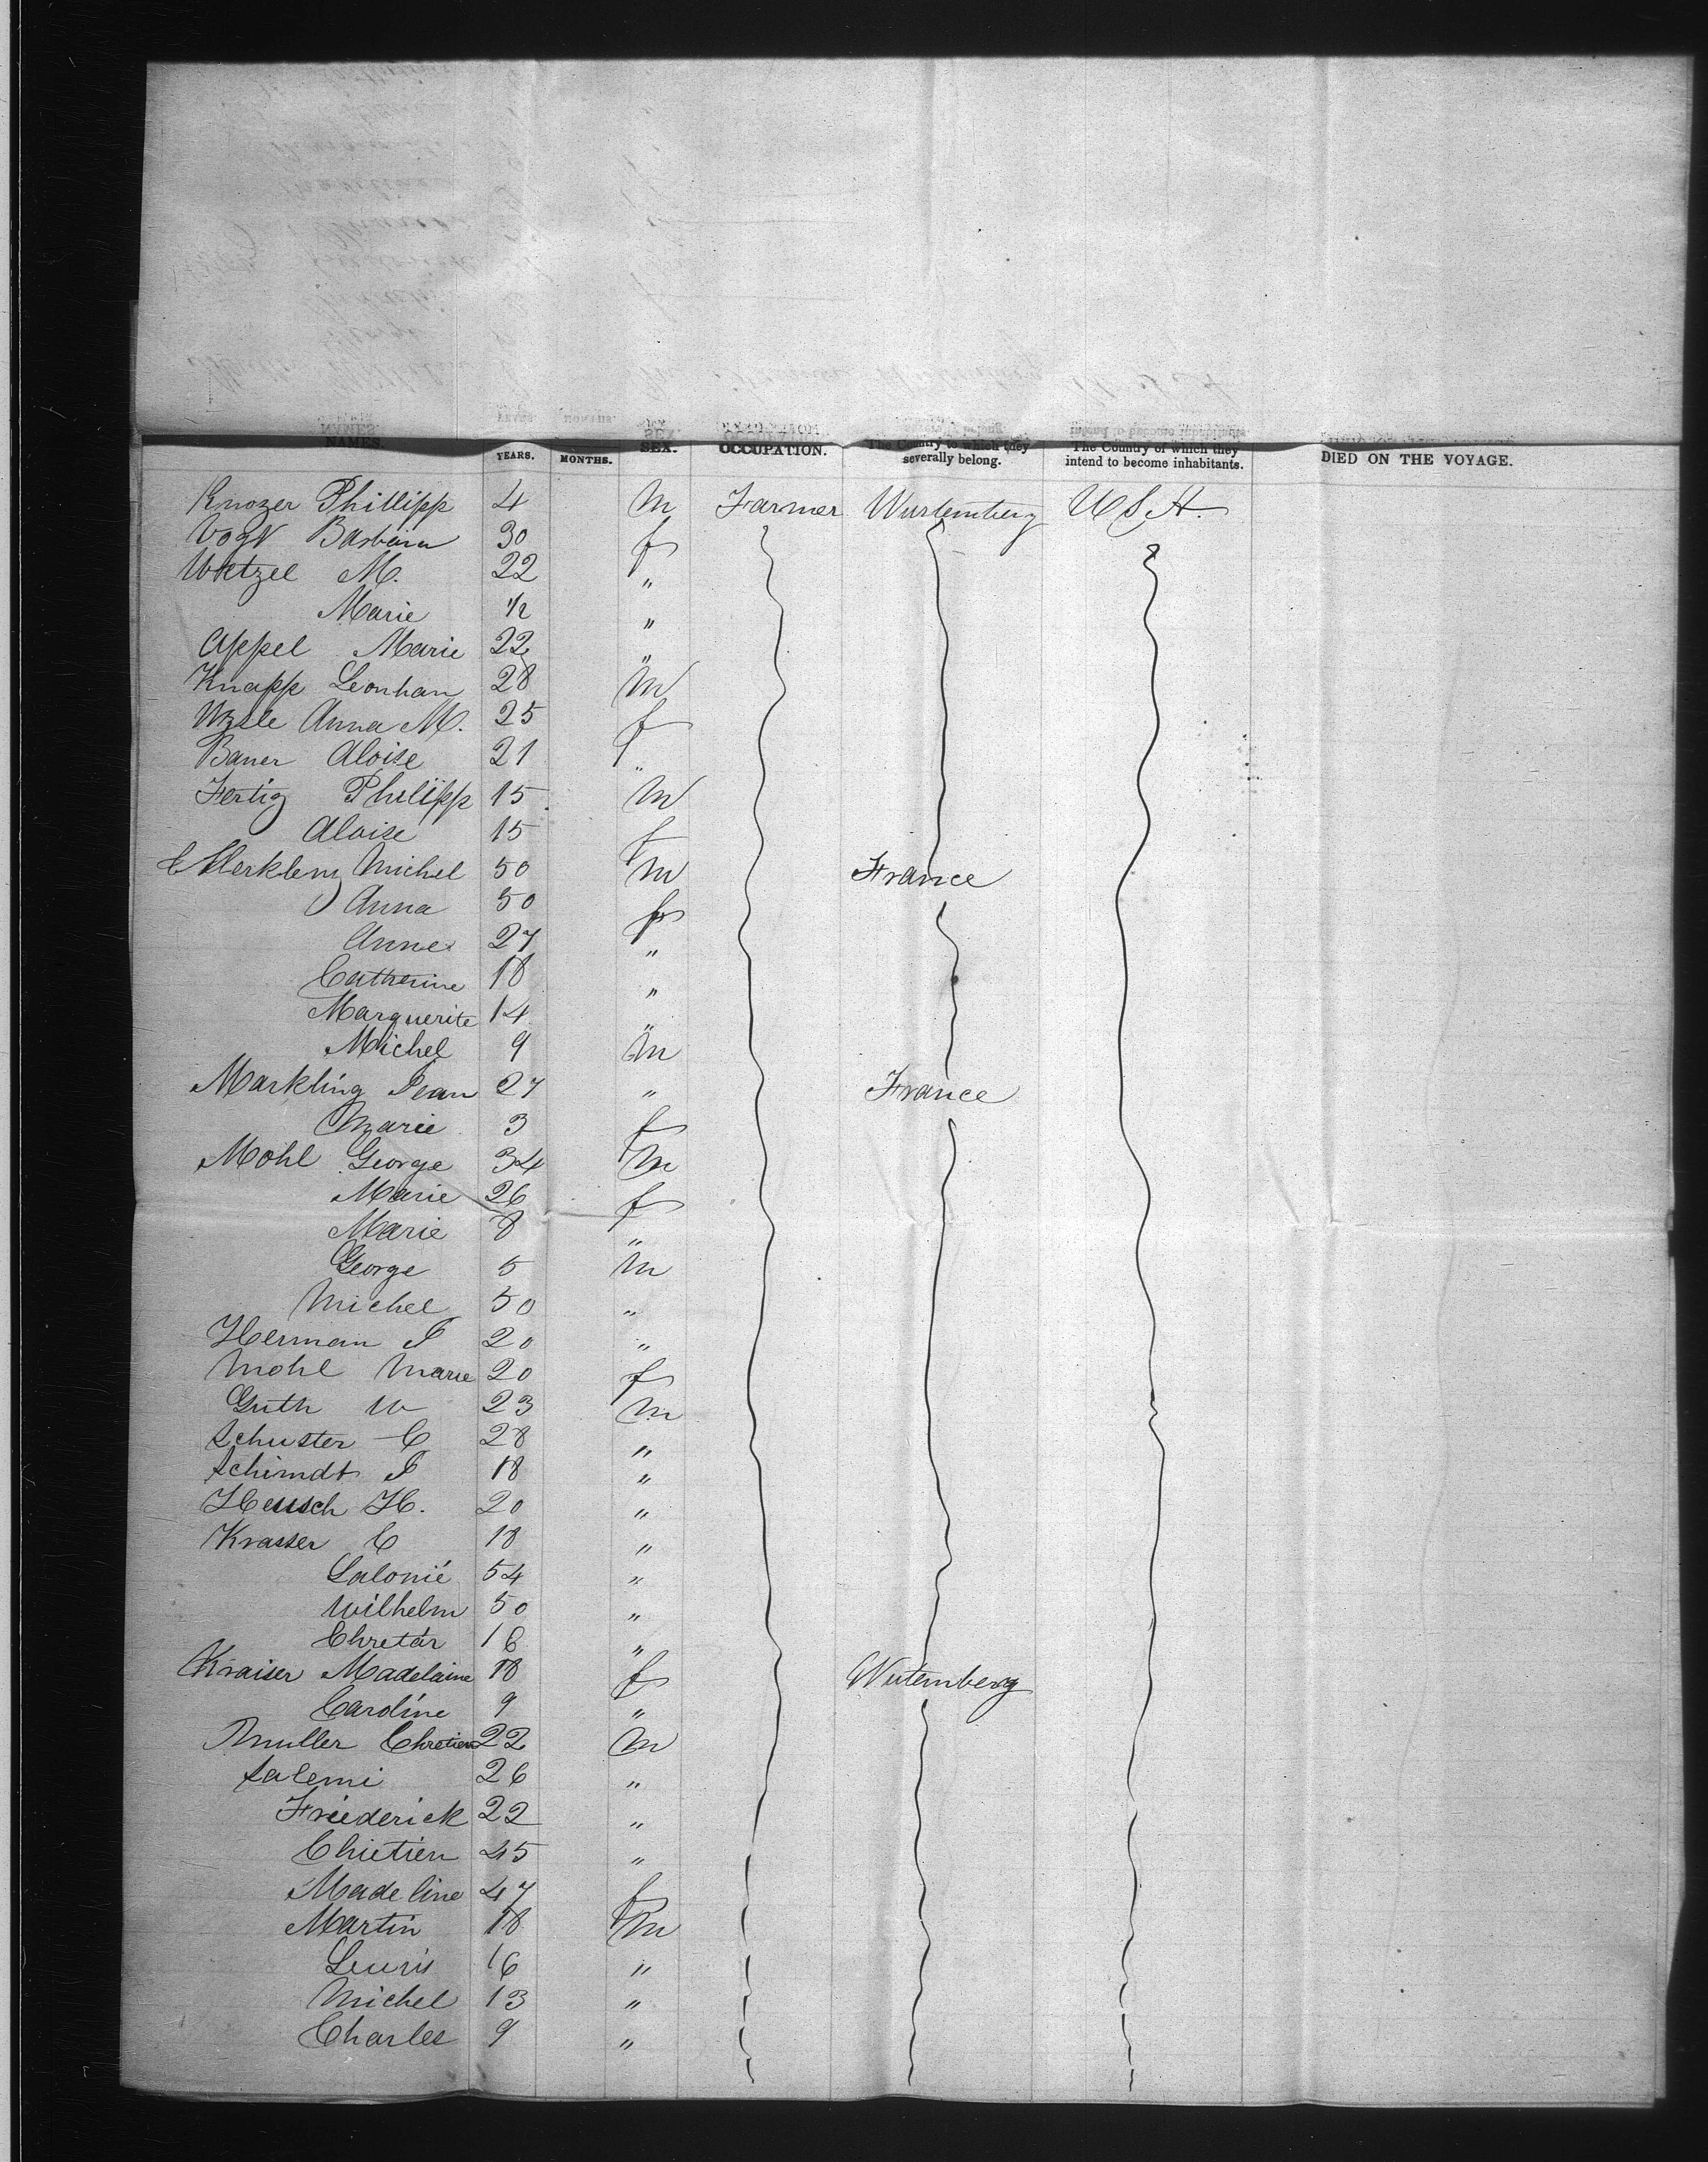 NAMES. YEARS. MONTHS. SEX. OCCUPATION. The Country to which they severally belong. The Country of which they intend to become inhabitants. DIED ON THE VOYAGE.
Knozer Phillipp 4 m Farmer Wurtemberg U S A.
Vogt Barbara 30 f
Wetzel M. 22 "
Marie 1/2 "
Appel Marie 22 "
Knapp Leonhan 28 m
Anna M. 25 f
Baner Aloise 21 "
Fertig Philipp 15 m
Aloise 15 f
Michel 50 m France
Anna 50 f
Anne 27 "
Catherine 18 "
Marguerite 14 "
Michel 9 m
Markling Jean 27 " France
Marie 3 f
Mohl George 34 m
Marie 26 f
Marie 8 "
George 5 m
Michel 50 "
Herman J 20 "
Mohl Marie 20 f
Guth W 23 m
Schuster C 28 "
Schimdt J 18 "
Heusch H. 20 "
Krasser C 18 "
Salonié 54 "
Wilhelm 50 "
Chretár 16 "
Kraiser Madelaine 18 f Wutemberg
Caroline 9 "
Muller Chretien 22 m
Salemi 26 "
Friederick 22 "
Chietien 45 "
Madeline 47 f
Martin 18 m
Louis 16 "
Michel 13 "
Charles 9 "